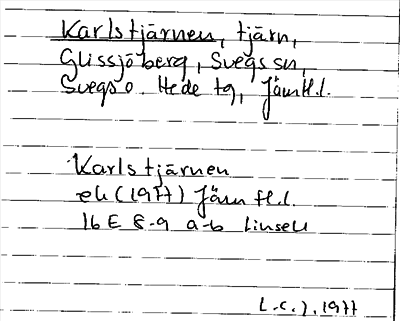 Karlstjärnen, tjärn,
Glissjöberg, Svegs sn,
Svegs o. Hede tg, Jämtl.l.
Karlstjärnen
ek (1977) Jämtl.l.
16 E 8-9 a-b Linsell
L.C.J. 1977